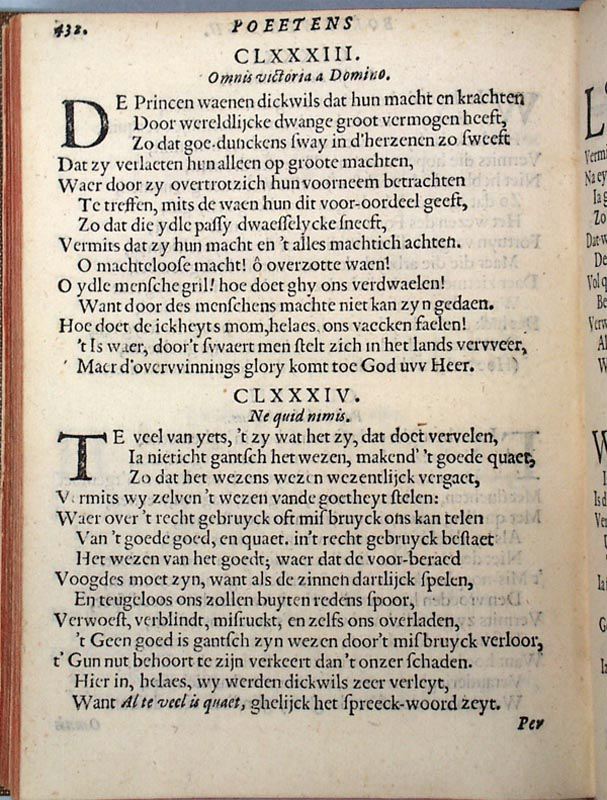 432. POEETENS
CLXXXIII.
Omnis victoria a Domino.
DE Princen waenen dickwils dat hun macht en krachten
Door wereldlijcke dwange groot vermogen heeft,
Zo dat goe-dunckens sway in d'herzenen zo sweeft
Dat zy verlaeten hun alleen op groote machten,
Waer door zy overtrotzich hun voorneem betrachten
Te treffen, mits de waen hun dit voor-oordeel geeft,
Zo dat die ydle passy dwaesselycke sneeft,
Vermits dat zy hun macht en 't alles machtich achten.
O machteloose macht! ô overzotte waen!
O ydle mensche gril! hoe doet ghy ons verdwaelen!
Want door des menschens machte niet kan zyn gedaen.
Hoe doet de ickheyts mom, helaes, ons vaecken faelen!
't Is waer, door't svvaert men stelt zich in het lands vervveer,
Maer d'overvvinnings glory komt toe God uvv Heer.
CLXXXIV.
Ne quid nimis.
TE veel van yets, 't zy wat het zy, dat doet vervelen,
Ia nieticht gantsch het wezen, makend' 't goede quaet,
Zo dat het wezens wezen wezentlijck vergaet,
Vermits wy zelven 't wezen vande goetheyt stelen:
Waer over 't recht gebruyck oft misbruyck ons kan telen
Van 't goede goed, en quaet. in't recht gebruyck bestaet
Het wezen van het goedt; waer dat de voor-beraed
Voogdes moet zyn, want als de zinnen dartlijck spelen,
En teugeloos ons zollen buyten redens spoor,
Verwoest, verblindt, misruckt, en zelfs ons overladen,
't Geen goed is gantsch zyn wezen door't misbruyck verloor,
t' Gun nut behoort te zijn verkeert dan 't onzer schaden.
Hier in, helaes, wy werden dickwils zeer verleyt,
Want Al te veel is quaet, ghelijck het spreeck-woord zeyt.
Per